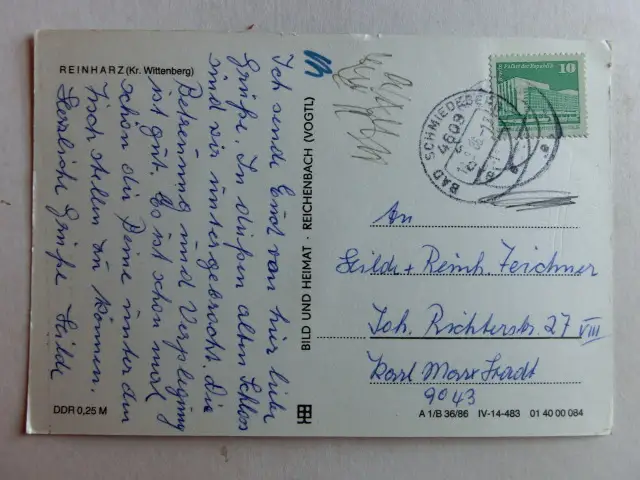 REINHARZ (Kr. Wittenberg)
Ich sende Euch von hier liebe
Grüße. In diesem alten Schloss
sind wir untergebracht. Die
Betreuung und Verpflegung
ist gut. Es ist schon mal
schön die Beine unter den
Tisch stellen zu können.
Herzliche Grüße Hilde
DDR 0,25 M
BILD UND HEIMAT · REICHENBACH (VOGTL)
Palast der Republik
10
BAD SCHMIEDEBERG
4603
An
Hilde + Reinh. Zeichner
Joh. Richterstr. 27 VIII
Karl Marx Stadt
9043
A 1/B 36/86 IV-14-483 01 40 00 084